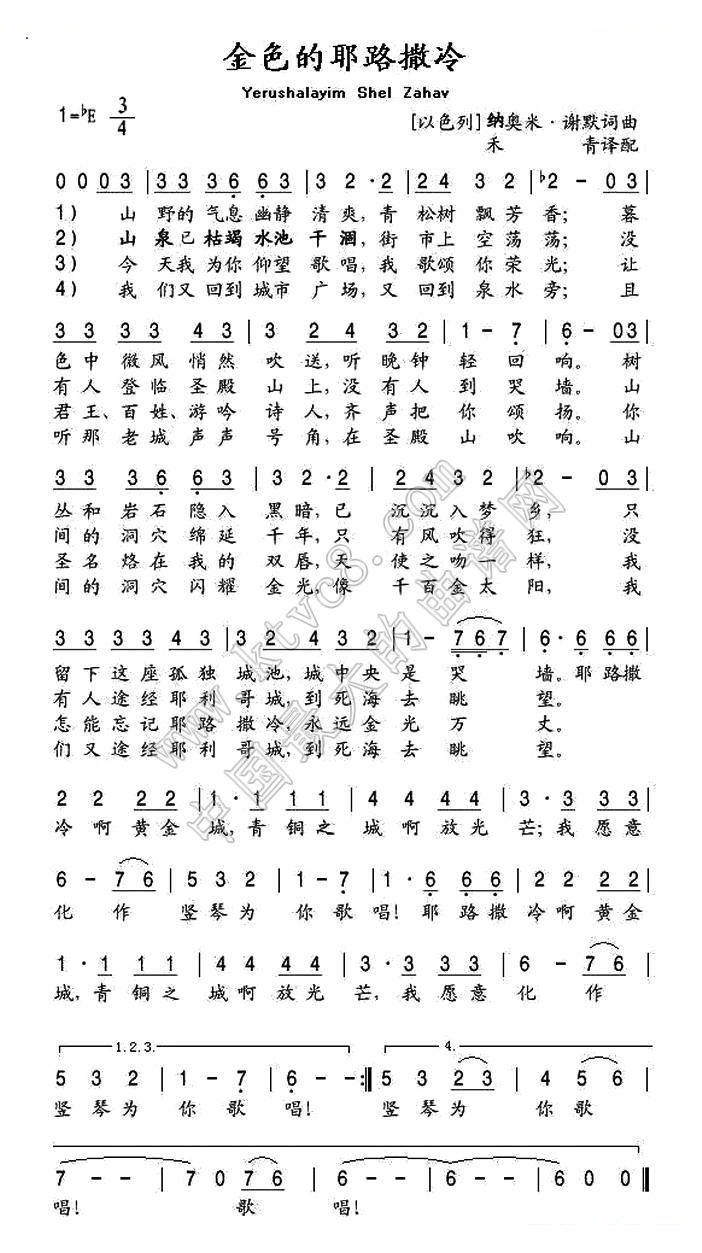 金色的耶路撒冷
Yerushalayim Shel Zahav
1=♭E 3/4
[以色列]纳奥米·谢默词曲
禾 青译配
0 0 0 3 | 3 3 3 6 6 3 | 3 2 · 2 | 2 4 3 2 | ♭2 - 0 3 |
1） 山 野的 气息 幽静 清 爽，青 松树 飘 芳 香； 暮
2） 山 泉已 枯竭 水池 干 涸，街 市上 空 荡 荡； 没
3） 今 天我 为你 仰望 歌 唱，我 歌颂 你 荣 光； 让
4） 我 们又 回到 城市 广 场，又 回到 泉 水 旁； 且
3 3 3 3 4 3 | 3 2 4 3 | 3 2 3 2 | 1 - 7 | 6 - 0 3 |
色中 微风 悄然 吹 送，听 晚钟 轻 回 响。 树
有人 登临 圣殿 山 上，没 有人 到 哭 墙。 山
君王、百姓、游吟 诗 人，齐 声把 你 颂 扬。 你
听那 老城 声声 号 角，在 圣殿 山 吹 响。 山
3 3 3 6 6 3 | 3 2 · 2 | 2 4 3 2 | ♭2 - 0 3 |
丛和 岩石 隐入 黑 暗，已 沉沉入梦 乡， 只
间的 洞穴 绵延 千 年，只 有风吹得 狂， 没
圣名 烙在 我的 双 唇，天 使之吻一 样， 我
间的 洞穴 闪耀 金 光，像 千百金太 阳， 我
3 3 3 3 4 3 | 3 2 4 3 | 3 2 4 3 2 | 1 - 7 6 7 | 6 · 6 6 6 |
留下 这座 孤独 城 池，城 中央 是 哭 墙。耶 路撒
有人 途经 耶利 哥 城，到 死海 去 眺 望。
怎能 忘记 耶路 撒 冷，永 远金 光 万 丈。
们又 途经 耶利 哥 城，到 死海 去 眺 望。
2 2 2 2 | 1 · 1 1 1 | 4 4 4 4 | 3 · 3 3 3 |
冷 啊 黄金 城，青 铜之 城 啊 放光 芒；我 愿意
6 - 7 6 | 5 3 2 | 1 - 7 | 1 · 6 6 6 | 2 2 2 2 |
化 作 竖琴为 你 歌 唱！耶 路撒 冷啊 黄金
1 · 1 1 1 | 4 4 4 4 | 3 · 3 3 3 | 6 - 7 6 |
城，青 铜之 城 啊 放光 芒，我 愿意 化 作
1.2.3. 4.
5 3 2 | 1 - 7 | 6 - - :‖ 5 3 2 3 | 4 5 6 |
竖琴为 你 歌 唱！ 竖琴为 你 歌
7 - - | 7 0 7 6 | 6 - - | 6 - - | 6 0 0 ‖
唱！ 歌 唱！
www.ktvc8.com
中国最大的曲谱网